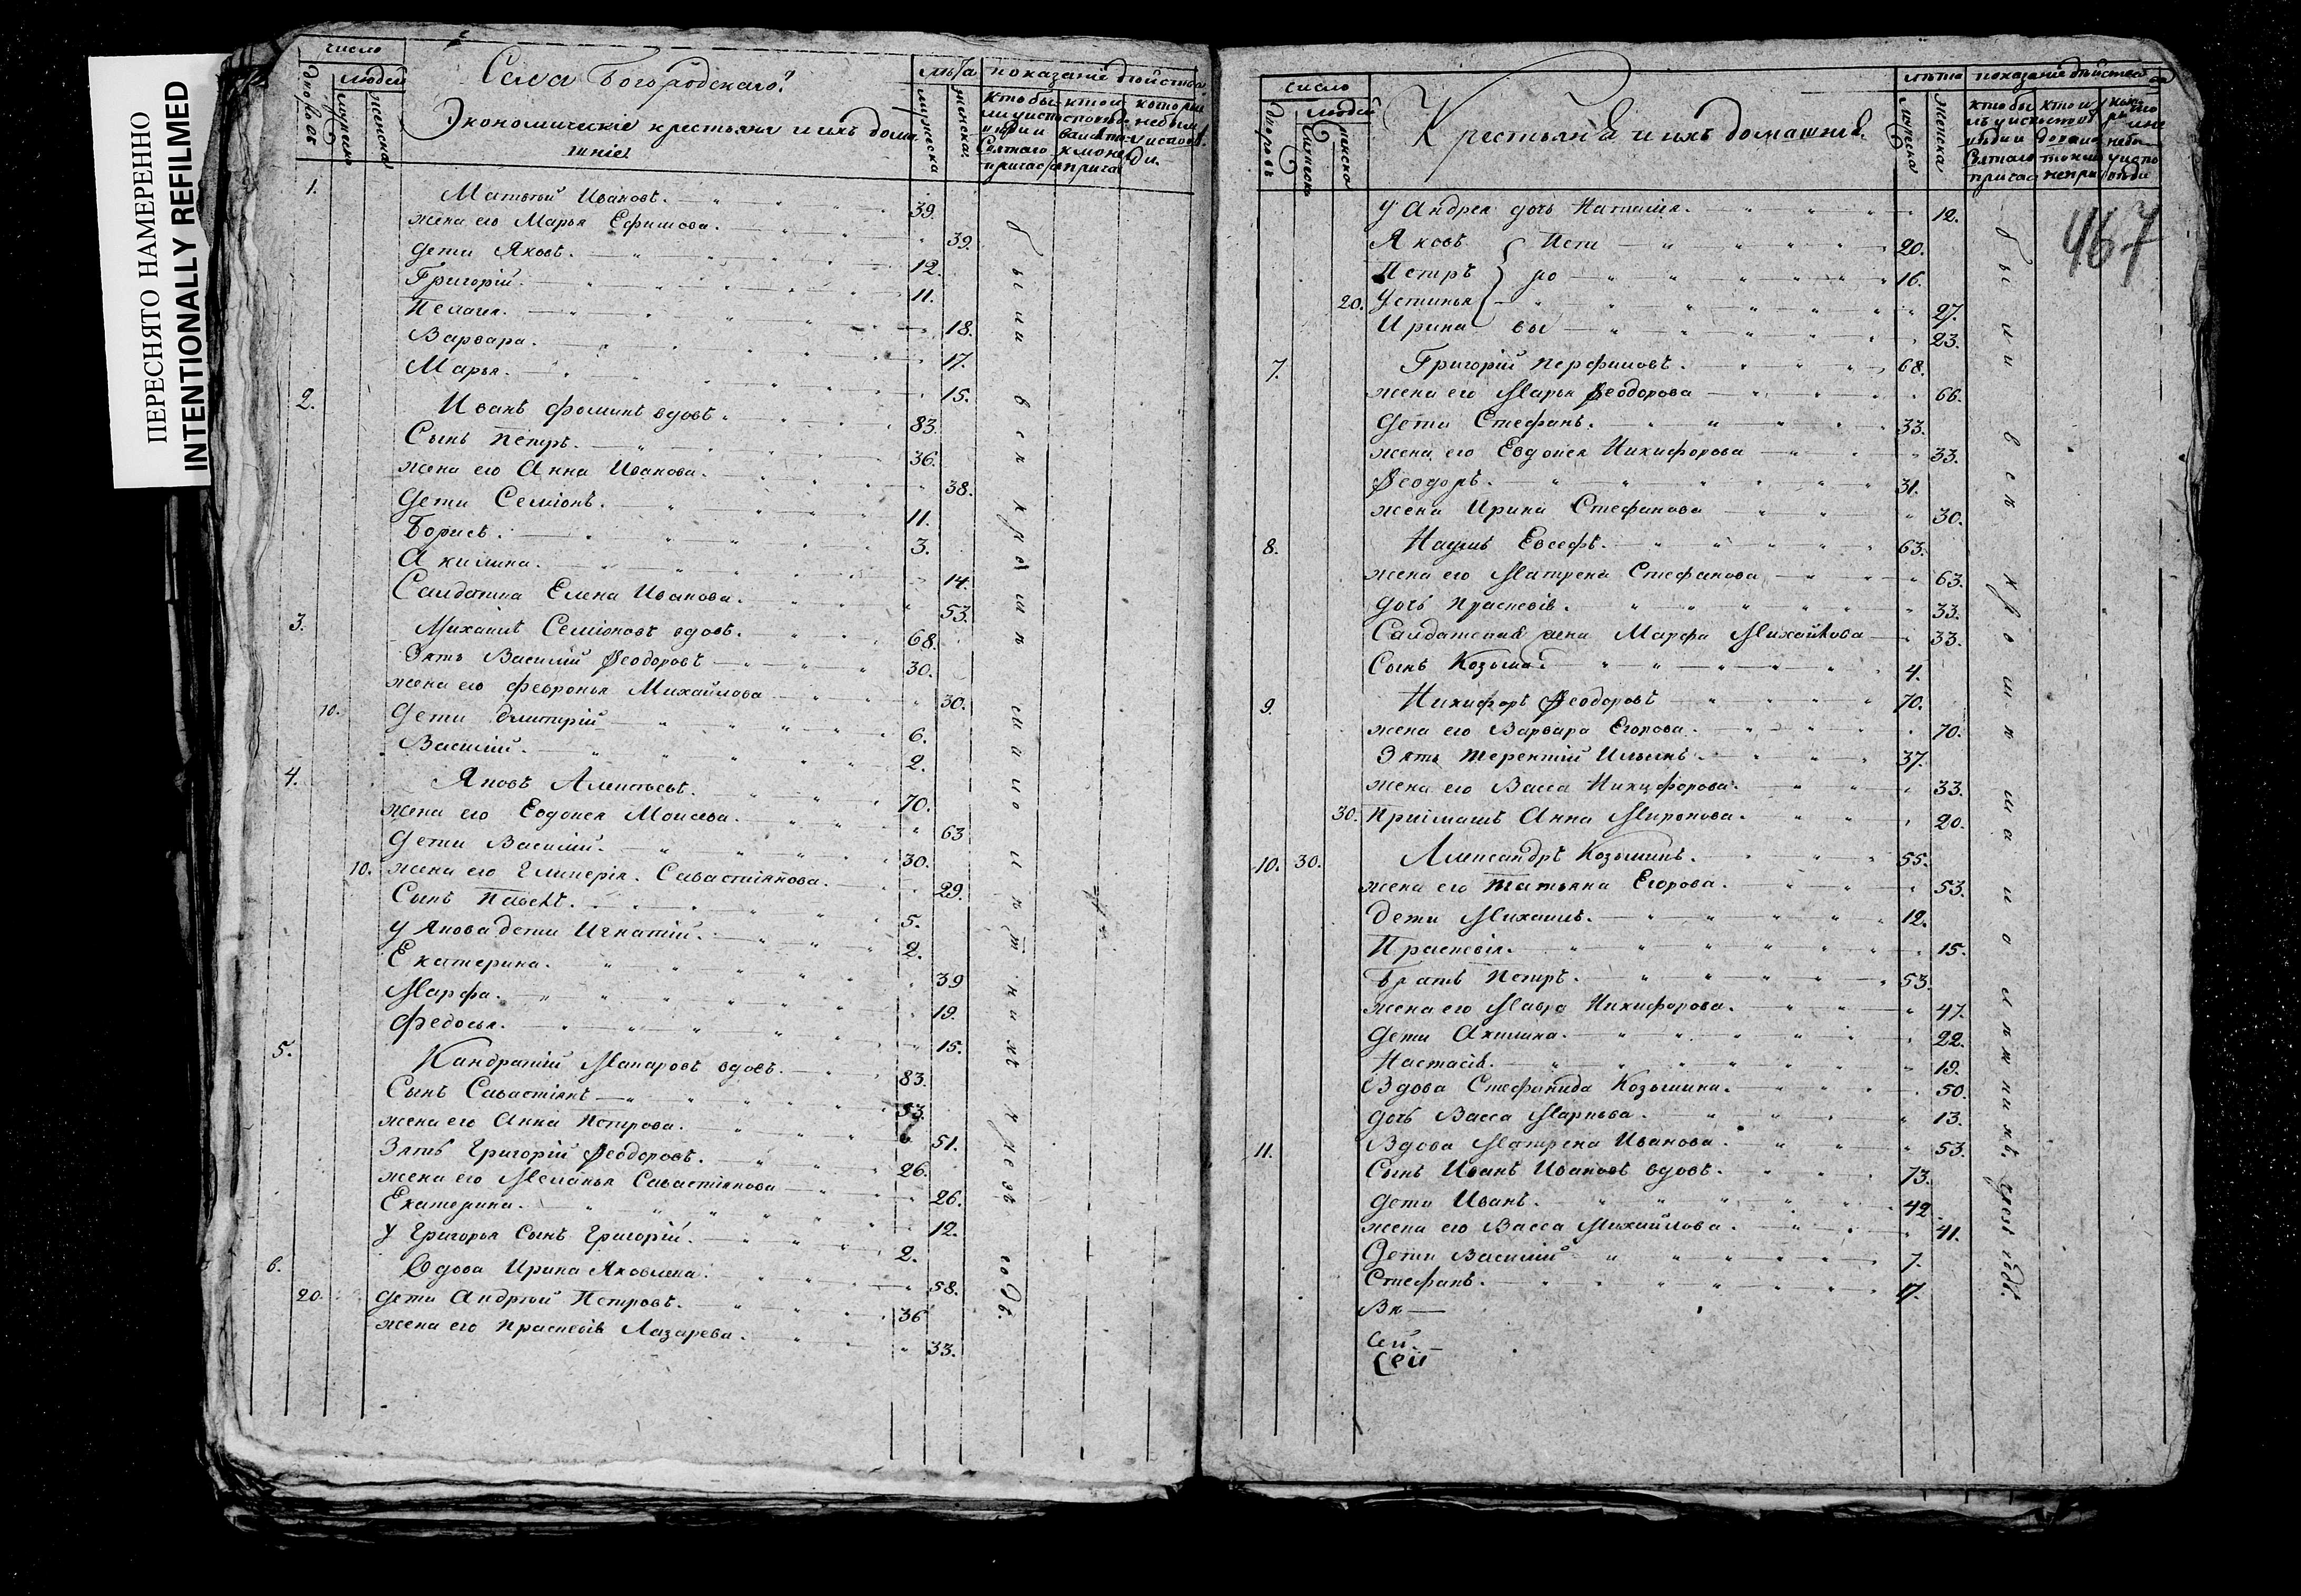 ПЕРЕСНЯТО НАМЕРЕННО
INTENTIONALLY REFILMED
число
людей
дворовъ
мужеска
женска
Села Богородскаго
Экономическіе крестьяне и ихъ дома
шніе
лѣта
мужеска
женска
показаніе дѣйства
1. Матвѣй Ивановъ. 39.
жена его Марья Ефимова. 39.
дети Яковъ. 12.
Григорій. 11.
Пелагея. 18.
Варвара. 17.
Марья. 15.
2. Иванъ Фоминъ вдовъ. 83.
Сынъ Петръ. 36.
жена его Анна Иванова. 38.
дети Семіонъ. 11.
Борисъ. 3.
Акилина. 14.
Салдатка Елена Иванова. 53.
3. Михаилъ Семіоновъ вдовъ. 68.
Зять Василій Ѳеодоровъ 30.
жена его Февронья Михайлова 30.
10. дети Дмитрій 6.
Василій. 2.
4. Яковъ Алентьевъ. 70.
жена его Евдокея Моисева. 63
дети Василій. 30.
10. жена его Гликерія. Савастіянова. 29.
Сынъ Павелъ. 5.
у Якова дети Игнатій. 2.
Екатерина. 39
Марфа. 19.
Федосья. 15.
5. Кандратій Макаровъ вдовъ. 83.
Сынъ Савастіянъ 53.
жена его Анна Петрова. 51.
Зять Григорій Ѳеодоровъ. 26.
жена его Меланья Савастіянова 26.
Екатерина. 12.
у Григорья Сынъ Григорій. 2.
6. Вдова Ирина Яковлева. 58.
20. дети Андрѣй Петровъ. 36
жена его Праскевія Лазарева. 33.
были вси
число
людей
дворовъ
мужеска
женска
Крестьянѣ и ихъ домашніе.
лѣта
мужеска
женска
показаніе дѣйства
467
у Андрея дочь Наталия. 12.
Яковъ Пет 20.
Петръ ро 16.
20. Устинья 27.
Ирина вы 23.
7. Григорій Перфиловъ. 68.
жена его Марья Ѳеодорова 66.
дети Стефанъ. 33.
жена его Евдокея Никифорова 33.
Ѳеодоръ. 31.
жена Ирина Стефанова 30.
8. Наумъ Евсефъ. 63.
жена его Матрена Стефанова 63.
дочь Праскевія. 33.
Салдатская жена Марфа Михайлова 33.
Сынъ Козьма. 4.
9. Никифоръ Ѳеодоровъ 70.
жена его Варвара Егорова. 70.
Зять Терентій Ильинъ. 37.
жена его Васса Никифорова. 33.
30. Пріімашъ Анна Миронова. 20.
10. 30. Александръ Козьминъ. 55.
жена его Татьяна Егорова. 53.
дети Михаилъ. 12.
Праскевія. 15.
Братъ Петръ. 53.
жена его Мавра Никифорова. 47.
дети Акилина. 22.
Настасія. 19.
Вдова Стефанида Козьмина. 50.
дочь Васса Маркова. 13.
11. Вдова Матрена Иванова. 53.
Сынъ Иванъ Ивановъ вдовъ. 73.
дети Иванъ. 42.
жена его Васса Михайлова. 41.
дети Василій 7.
Стефанъ. 17.
Вк
Сей
Сей
были вси кромѣ малолѣтнихъ